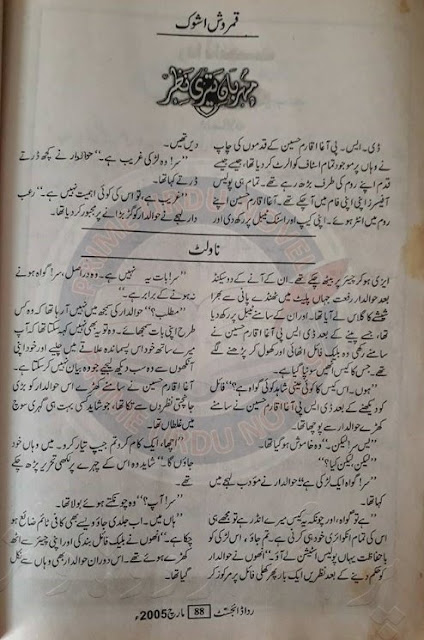 قمروش اشوک
مہربان تیری نظر
ڈی۔ ایس۔ پی آغا اقارم حسین کے قدموں کی چاپ
نے وہاں پر موجود تمام اسٹاف کو الرٹ کر دیا تھا، جیسے جیسے
قدم اپنے روم کی طرف بڑھ رہے تھے۔ تمام ہی پولیس
آفیسرز اپنی اپنی فام میں آچکے تھے۔ آغا اقارم حسین اپنے
روم میں انٹر ہوئے۔ اپنی کیپ اور اسٹک ٹیبل پر رکھ دی اور
دیں تھیں۔
"سر! وہ لڑکی غریب ہے۔" حوالدار نے کچھ ڈرتے
ڈرتے کہا تھا۔
"غریب ہے، تو اس کی کوئی اہمیت نہیں ہے۔" رعب
دار لہجے نے حوالدار کو گڑبڑانے پر مجبور کر دیا تھا۔
ناولٹ
ایزی ہو کر چیئر پر بیٹھ چکے تھے۔ ان کے آنے کے دو سیکنڈ
بعد حوالدار رفعت جہاں پلیٹ میں ٹھنڈے پانی سے بھرا
شیشے کا گلاس لے آیا تھا۔ اور ان کے سامنے ٹیبل پر رکھ دیا
تھا، جسے پینے کے بعد ڈی ایس پی آغا اقارم حسین نے
سامنے رکھی وہ بلیک فائل اٹھائی اور کھول کر پڑھنے لگے
تھے۔ جس کا کیس انھیں سونپا گیا ہے۔
"ہوں۔ اس کیس کا کوئی عینی شاہد کوئی گواہ ہے؟" فائل
کو دیکھنے کے بعد ڈی ایس پی آغا اقارم حسین نے سامنے
کھڑے حوالدار سے پوچھا تھا۔
"لیس سر! لیکن۔" وہ خاموش ہو گیا تھا۔
"لیکن، لیکن کیا؟"
"سر! گواہ ایک لڑکی ہے" حوالدار نے مؤدب لہجے میں
کہا تھا۔
"ہے تو گواہ، اور چونکہ یہ کیس میرے انڈر ہے تو مجھے ہی
اس کی تمام انکوائری خود ہی کرنی ہے۔ تم جاؤ، اس لڑکی کو
باحفاظت یہاں پولیس اسٹیشن لے آؤ۔" انھوں نے حوالدار
کو حکم دینے کے بعد نظریں ایک بار پھر کھلی فائل پر مرکوز کر
"سر! بات یہ نہیں ہے۔ وہ دراصل، سر! گواہ ہونے
نہ ہونے کے برابر ہے۔"
"مطلب؟" حوالدار کی سمجھ میں نہیں آ رہا تھا کہ وہ کس
طرح اپنی بات سمجھائے۔ وہ تو یہ بھی نہیں کہہ سکتا تھا کہ آپ
میرے ساتھ خود اس پسماندہ علاقے میں چلیے اور خود اپنی
آنکھوں سے وہ سب دیکھ لیجیے جو وہ بیان نہیں کر سکتا ہے۔
آغا اقارم حسین نے سامنے کھڑے اس حوالدار کو بڑی
جانچتی نظروں سے تکا تھا، جو شاید کسی بہت ہی گہری سوچ
میں تھا۔
"اچھا، ایک کام کرو تم جیپ تیار کرو۔ میں وہاں خود
جاؤں گا۔" شاید وہ اس کے چہرے پر لکھی تحریر پڑھ چکے
تھے۔
"سر! آپ؟" وہ چونکتے ہوئے بولا تھا۔
"ہاں میں۔ اب جلدی جاؤ ویسے بھی کافی ٹائم ضائع ہو
چکا ہے۔" انھوں نے بلیک فائل بند کی اور اپنی چیئر سے اٹھ
کھڑے ہوئے تھے۔ اس دوران حوالدار بھی وہاں سے نکل
گیا تھا۔
ردا ڈائجسٹ 88 مارچ 2005ء